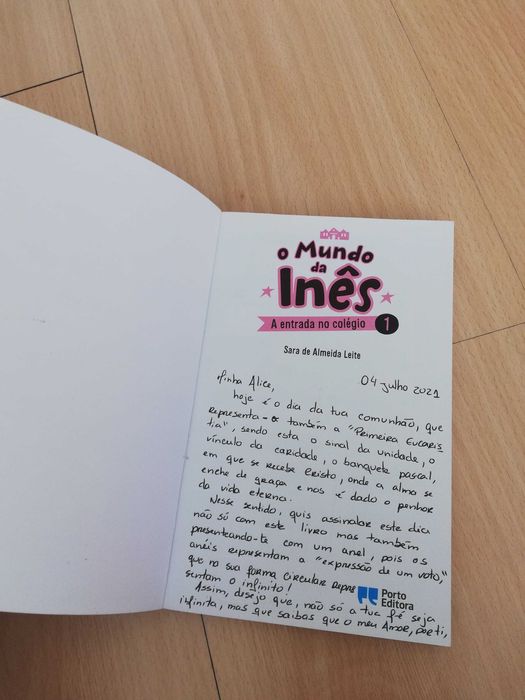 o Mundo
da
Inês
A entrada no colégio 1
Sara de Almeida Leite
04 julho 2021
Minha Alice,
hoje é o dia da tua comunhão, que
representa-se também a "Primeira Eucaris
tia", sendo esta o sinal da unidade, o
vínculo da caridade, o banquete pascal,
em que se recebe Cristo, onde a alma se
enche de graça e nos é dado o penhor
da vida eterna.
Nesse sentido, quis assinalar este dia
não só com este livro mas também
presenteando-te com um anel, pois os
anéis representam a "expressão de um voto,"
que na sua forma circular repre
sentam o infinito!
Assim, desejo que, não só a tua fé seja
infinita, mas que saibas que o meu Amor, por ti,
Porto
Editora